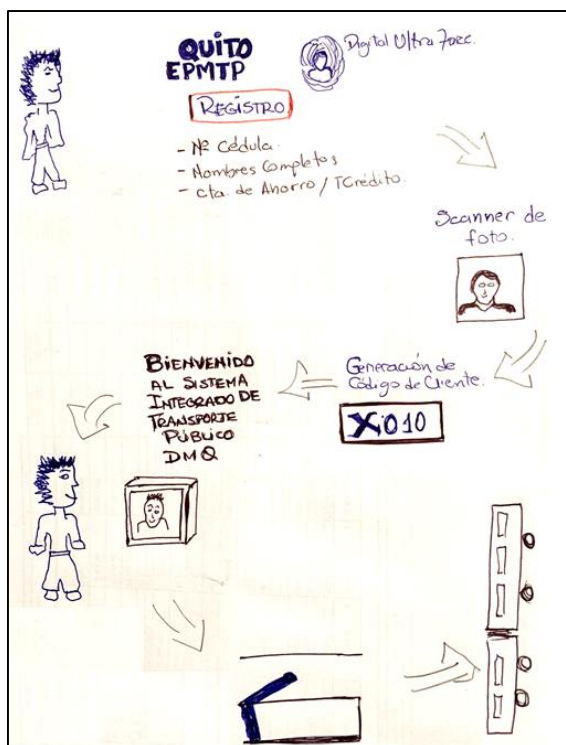 QUITO
EPMTP
Digital Ultra Face.
REGISTRO
- Nº Cédula.
- Nombres Completos
- Cta. de Ahorro / TCrédito.
Scanner de
foto.
Generación de
Código de Cliente.
X010
BIENVENIDO
AL SISTEMA
INTEGRADO DE
TRANSPORTE
PÚBLICO
DMQ